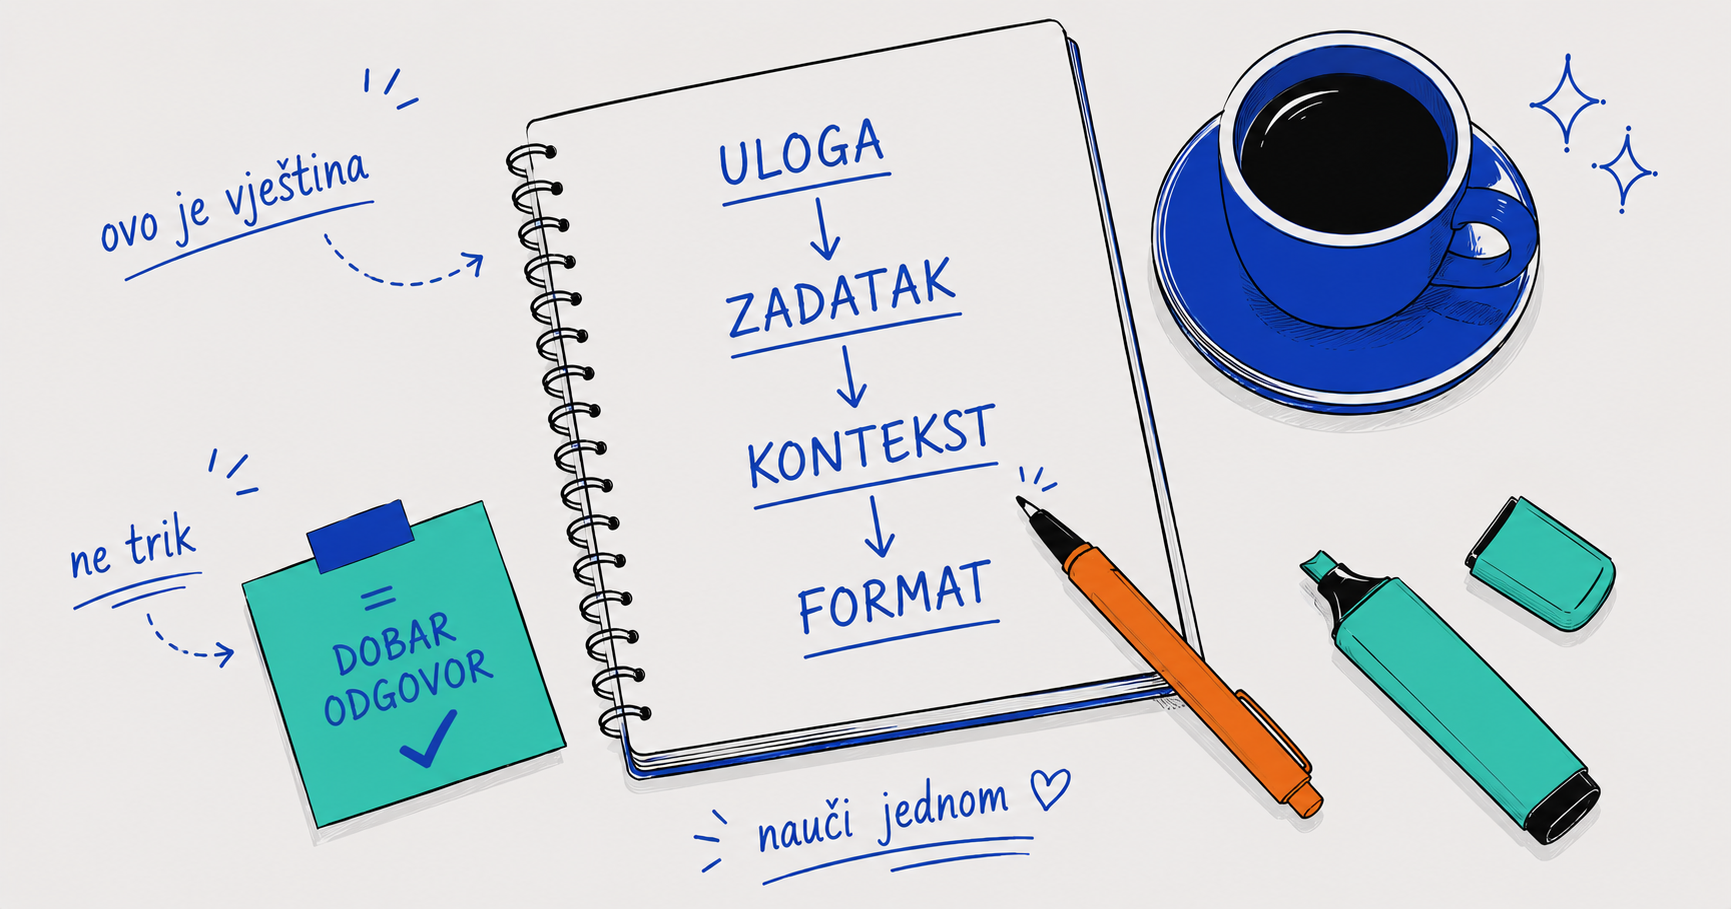 ovo je vještina
ULOGA
ZADATAK
KONTEKST
FORMAT
ne trik
=
DOBAR
ODGOVOR
nauči jednom